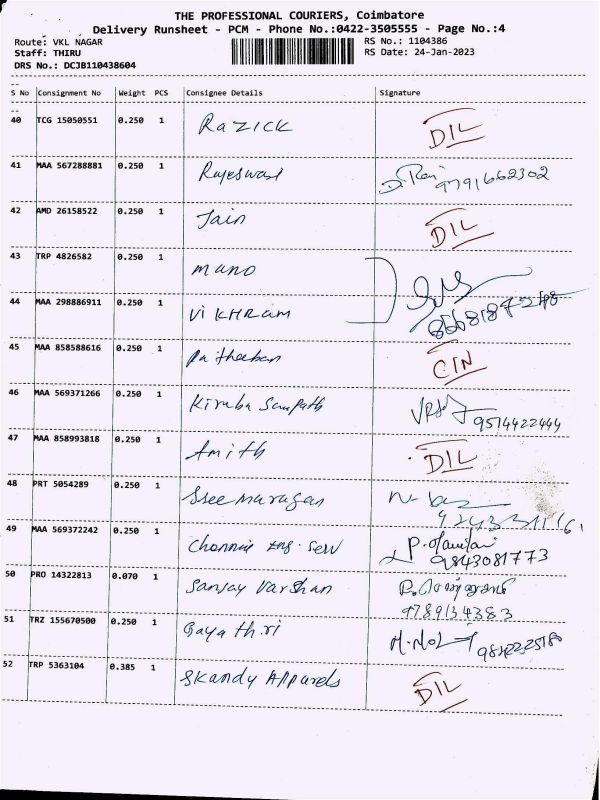 THE PROFESSIONAL COURIERS, Coimbatore
Delivery Runsheet - PCM - Phone No.:0422-3505555 - Page No.:4
Route: VKL NAGAR RS No.: 1104386
Staff: THIRU RS Date: 24-Jan-2023
DRS No.: DCJB110438604
S No Consignment No Weight PCS Consignee Details Signature
40 TCG 15050551 0.250 1 RaZICK DIL
41 MAA 567288881 0.250 1 Rajeswari 9791662302
42 AMD 26158522 0.250 1 Jain DIL
43 TRP 4826582 0.250 1 mano
44 MAA 298886911 0.250 1 Vi KHRam
45 MAA 858588616 0.250 1 CIN
46 MAA 569371266 0.250 1 Kiruba Sampath 9514422444
47 MAA 858993818 0.250 1 Amith DIL
48 PRT 5054289 0.250 1 Sree murugan
49 MAA 569372242 0.250 1 Chennai Eng. Serv 9843081773
50 PRO 14322813 0.070 1 Sanjay Varshan
9789134383
51 TRZ 155670500 0.250 1 Gayathri
52 TRP 5363104 0.385 1 Skandy Apparels DIL